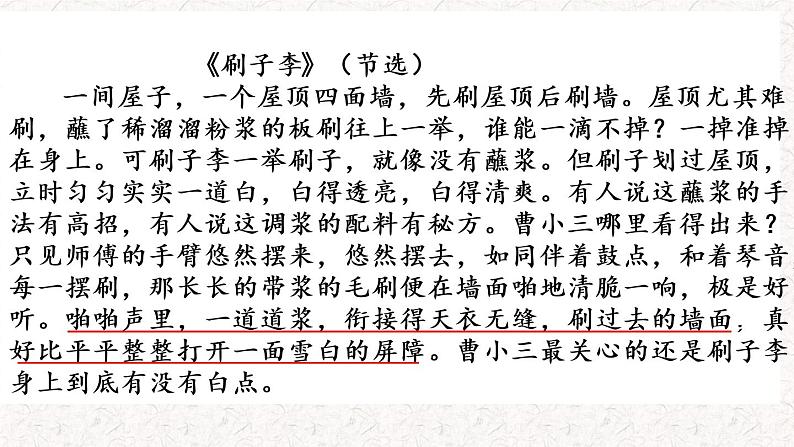 《刷子李》（节选）
一间屋子，一个屋顶四面墙，先刷屋顶后刷墙。屋顶尤其难
刷，蘸了稀溜溜粉浆的板刷往上一举，谁能一滴不掉？一掉准掉
在身上。可刷子李一举刷子，就像没有蘸浆。但刷子划过屋顶，
立时匀匀实实一道白，白得透亮，白得清爽。有人说这蘸浆的手
法有高招，有人说这调浆的配料有秘方。曹小三哪里看得出来？
只见师傅的手臂悠然摆来，悠然摆去，如同伴着鼓点，和着琴音
每一摆刷，那长长的带浆的毛刷便在墙面啪地清脆一响，极是好
听。啪啪声里，一道道浆，衔接得天衣无缝，刷过去的墙面，真
好比平平整整打开一面雪白的屏障。曹小三最关心的还是刷子李
身上到底有没有白点。